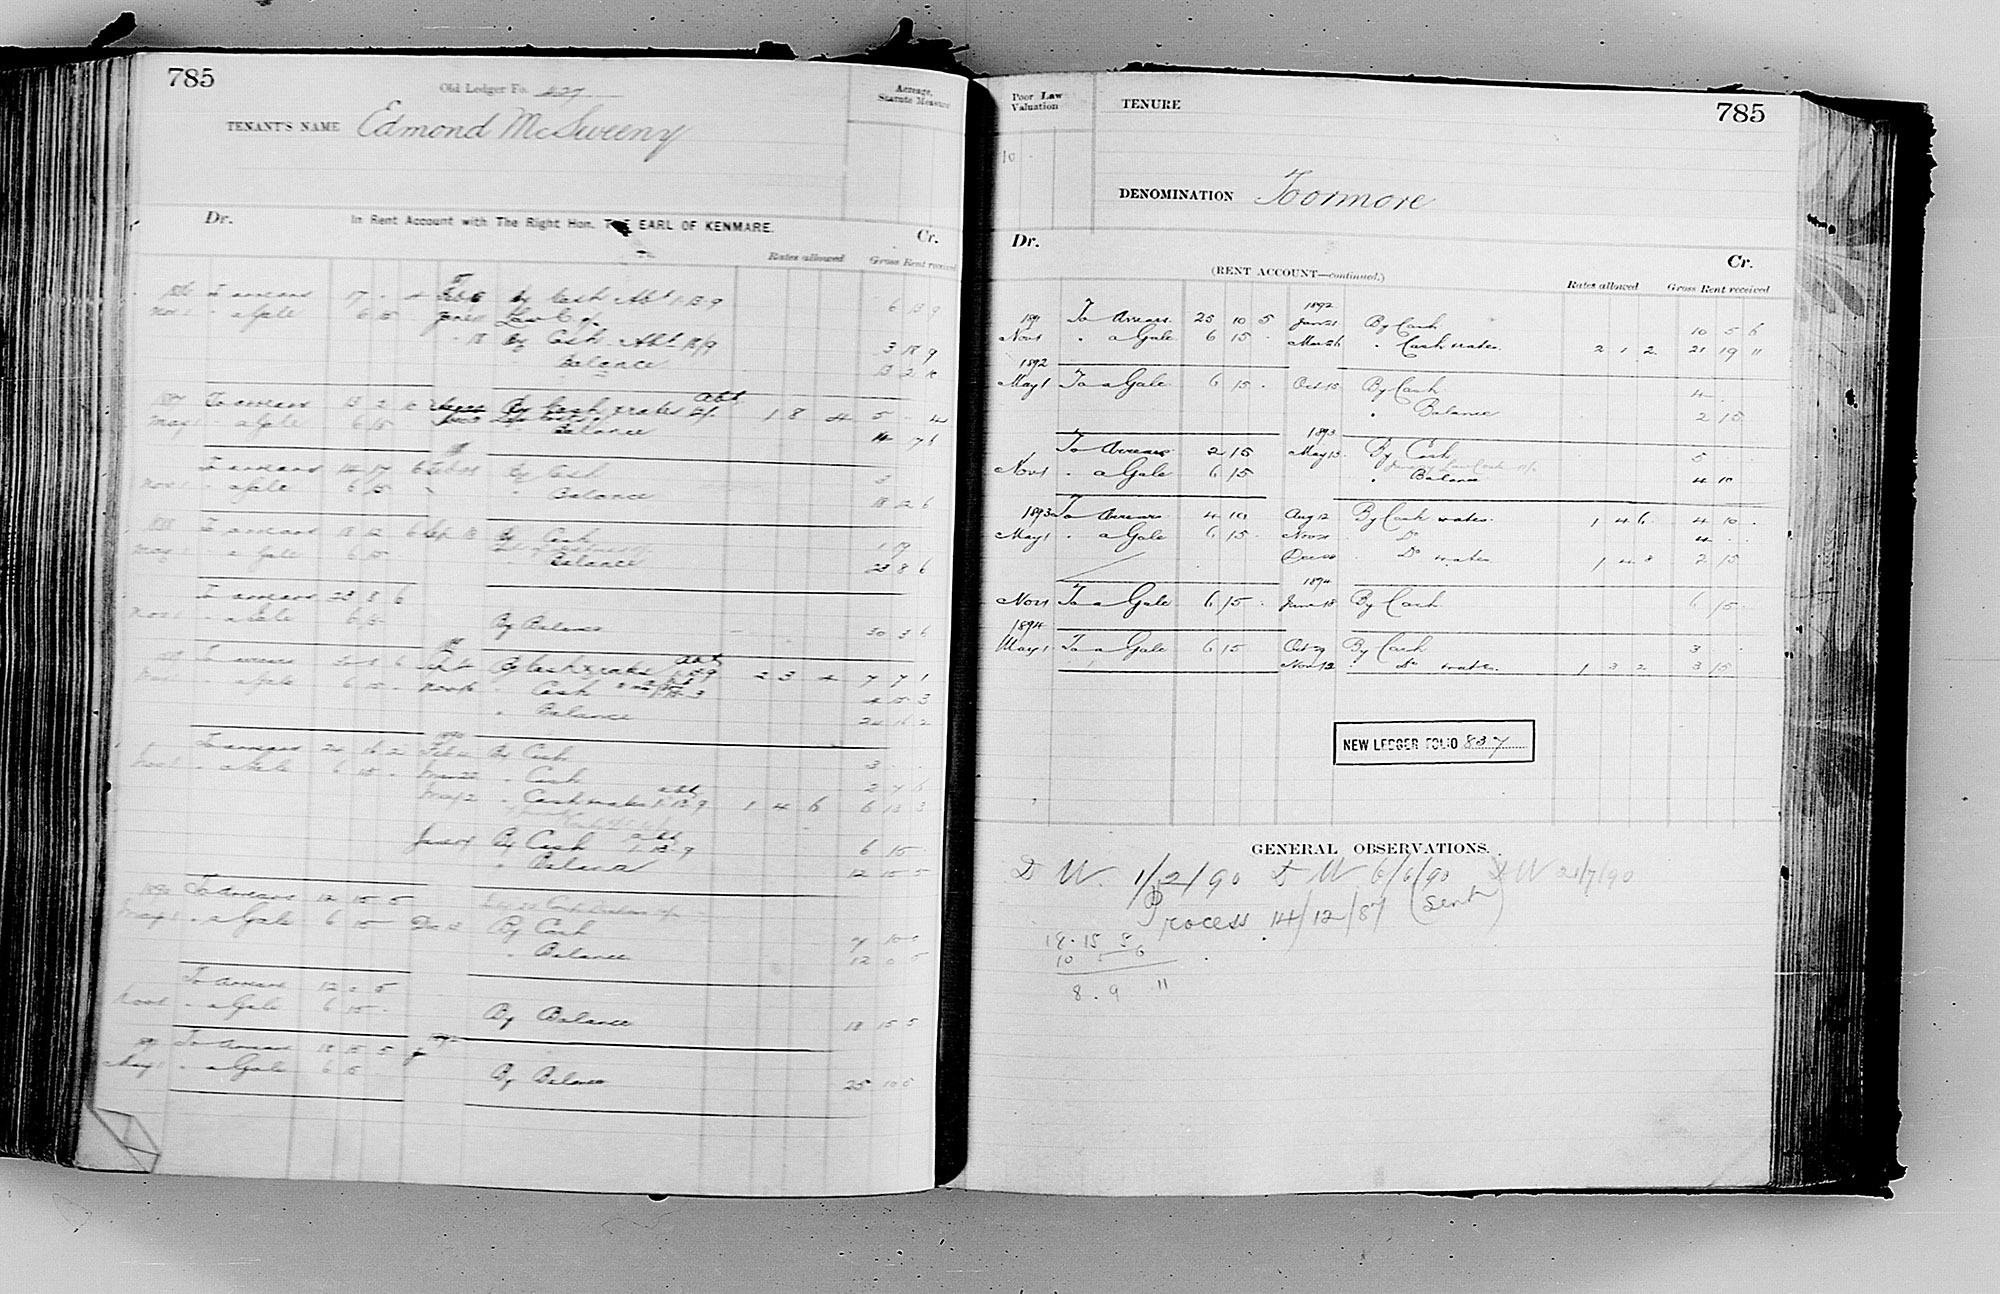 785
Old Ledger Fo. 427
Acreage, Statute Measure
TENANT'S NAME Edmond McSweeny
Dr. In Rent Account with The Right Hon. THE EARL OF KENMARE. Cr.
Rates allowed Gross Rent received
1886 To arrears 17 . 4 By Cash Abt 1.13.9 6 13 9
Nov 1 " a Gale 6 15
18 By Cash Abt 3 18 9
Balance 13 2 10
1887 To arrears 13 2 10 By Cash & rates 1 8 4 5 . 4
May 1 " a Gale 6 15 Balance 14 17 6
To arrears 14 17 6 By Cash 3
Nov 1 " a Gale 6 15 " Balance 18 12 6
1888 To arrears 18 12 6 Sep 18 By Cash 1 19
May 1 " a Gale 6 15 " Balance 23 8 6
To arrears 23 8 6
Nov 1 " a Gale 6 15 By Balance 30 3 6
To arrears 30 3 6 By Cash & rates 2 3 4 7 7 1
" a Gale 6 15 " Cash 4 15 3
" Balance 24 16 2
1890
To arrears 24 16 2 Feb By Cash 3
Nov 1 " a Gale 6 15 " Cash 2 7 6
May 2 " Cash & rates abt 1.13.9 1 4 6 6 13 3
By Cash abt 1.13.9 6 15
" Balance 12 15 5
1890 To Arrears 12 15 5
May 1 " a Gale 6 15 Dec By Cash 7 10
" Balance 12 0 5
To Arrears 12 0 5
Nov 1 " a Gale 6 15 By Balance 18 15 5
1891 To Arrears 18 15 5
May 1 " a Gale 6 15 By Balance 25 10 5
Poor Law Valuation
TENURE
785
10
DENOMINATION Toormore
Dr. Cr.
(RENT ACCOUNT—continued.)
Rates allowed Gross Rent received
1892
1891 To Arrears 25 10 5 By Cash 10 5 6
Nov 1 " a Gale 6 15 . Mar 26 " Cash & rates 2 1 2 21 19 11
1892
May 1 To a Gale 6 15 . Oct 15 By Cash 4
" Balance 2 15
1893
To Arrears 2 15 May 13 By Cash 5
Nov 1 " a Gale 6 15
" Balance 4 10
1893 To Arrears 4 10 Aug 12 By Cash & rates 1 4 6 4 10 .
May 1 " a Gale 6 15 . Do 4 . .
Do & rates 1 4 8 2 15
1894
Nov 1 To a Gale 6 15 . June 18 By Cash 6 15
1894
May 1 To a Gale 6 15 Oct 29 By Cash 3
Nov 12 " do & rates 1 3 2 3 15
NEW LEDGER FOLIO 837
GENERAL OBSERVATIONS.
D W. 1/2/90 D W 6/6/90 D W 21/7/90
Process 14/12/87 (Sent)
18.15 5
10 5 6
8 . 9 11